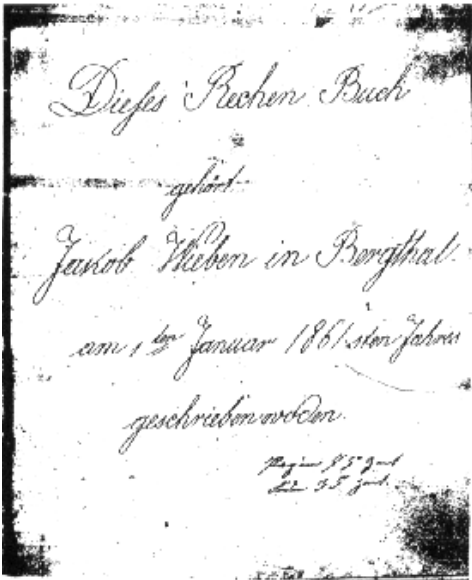 Dieses Rechen Buch
gehört
Jakob Wieben in Bergthal
am 1 ten Januar 1861 sten Jahres
geschrieben woden.
35